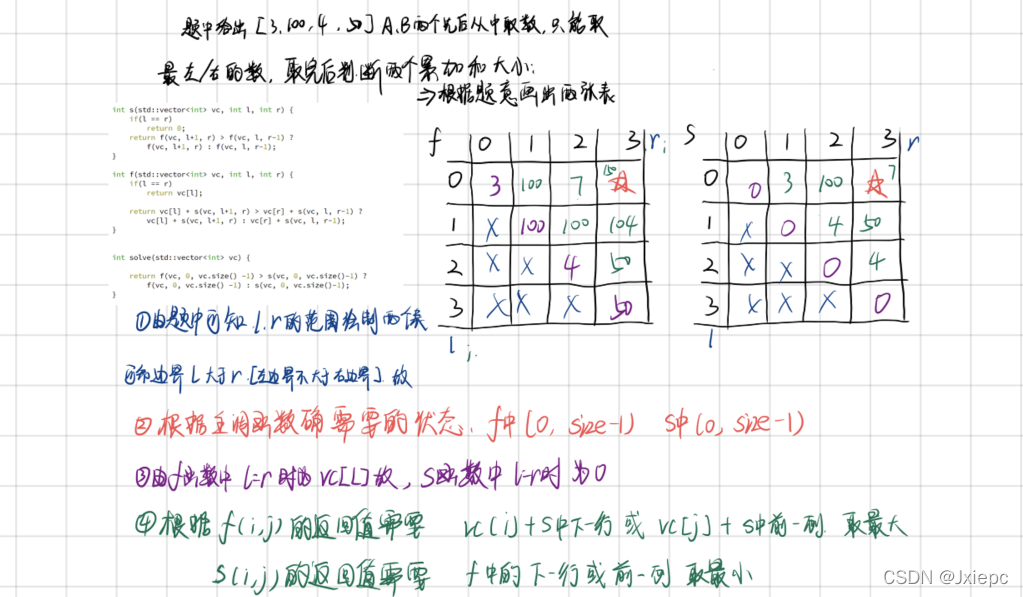 题中给出 [3,100,4,50] A,B两个先后从中取数,只能取
最左/右的数,取完后判断两个累加和大小;
⇒根据题意画出两张表
int s(std::vector<int> vc, int l, int r) {
if(l == r)
return 0;
return f(vc, l+1, r) > f(vc, l, r-1) ?
f(vc, l+1, r) : f(vc, l, r-1);
}
int f(std::vector<int> vc, int l, int r) {
if(l == r)
return vc[l];
return vc[l] + s(vc, l+1, r) > vc[r] + s(vc, l, r-1) ?
vc[l] + s(vc, l+1, r) : vc[r] + s(vc, l, r-1);
}
int solve(std::vector<int> vc) {
return f(vc, 0, vc.size() -1) > s(vc, 0, vc.size()-1) ?
f(vc, 0, vc.size() -1) : s(vc, 0, vc.size()-1);
}
f 0 1 2 3 r j
0 3 100 7 150
1 X 100 100 104
2 X X 4 50
3 X X X 50
l i
s 0 1 2 3 r
0 0 3 100 7
1 X 0 4 50
2 X X 0 4
3 X X X 0
l
①由题中可知 l.r的范围绘制两
边界 l 大于 r.[左边界不大于右边界].故
②根据主调函数确需要的状态. f中(0, size-1) S中(0, size-1)
③由f函数中 l=r时为 vc[L] 故, S函数中 l=r时为0
④根据 f(i,j) 的返回值需要 vc[i]+S中下一行 或 vc[j]+S中前一列 取最大
S(i,j)的返回值需要 f中的下一行或前一列 取最小
CSDN @Jxiepc